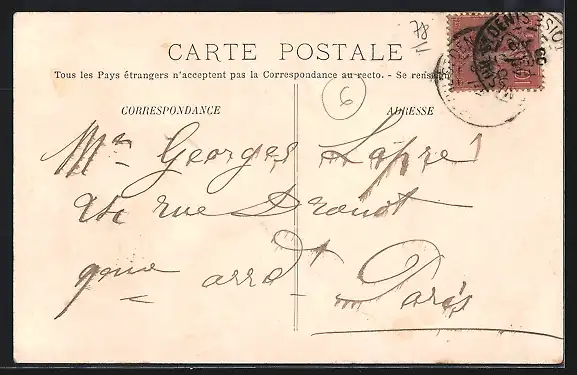 78
II
CARTE POSTALE
Tous les Pays étrangers n'acceptent pas la Correspondance au recto. - Se renseign
6
CORRESPONDANCE
ADRESSE
Georges Lapre
rue Drouot
9eme arrdt Paris